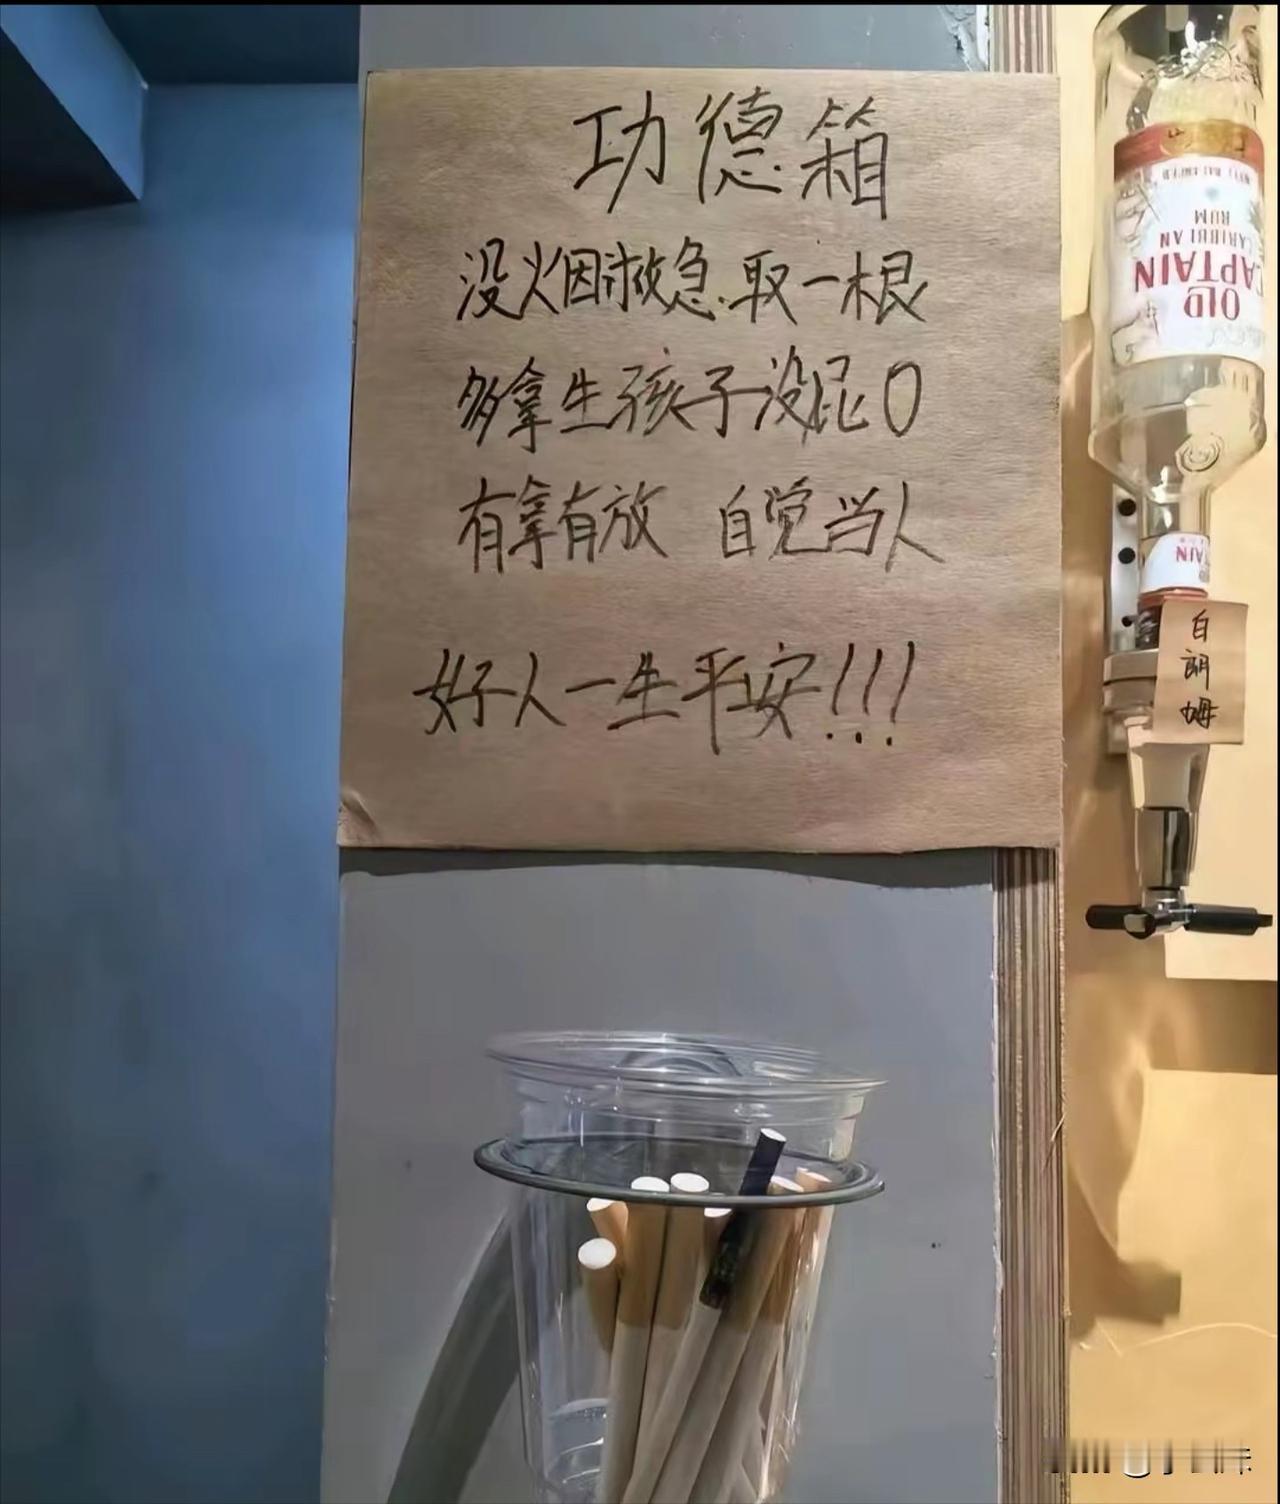 功德箱
没烟救急.取一根
多拿生孩子没屁0
有拿有放 自觉当人
好人一生平安!!!
OLD
CAPTAIN
CARIBBEAN
RUM
TAIN
白
朗
姆